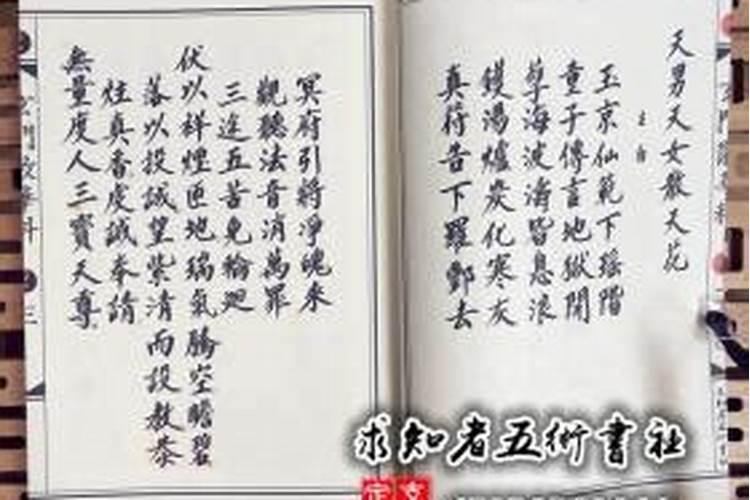 天男天女散天花
主白
玉京仙範下瑶階
童子傳言地獄開
孽海波濤皆息浪
鑊湯爐炭化寒灰
真符告下羅酆去
冥府引將淨魄來
觀聽法音消萬罪
三途五苦免輪廻
伏以祥煙匝地瑞氣騰空瞻碧
落以投誠望紫清而設教恭
炷真香虔誠奉請
無量度人三寶天尊
求知者五術書社